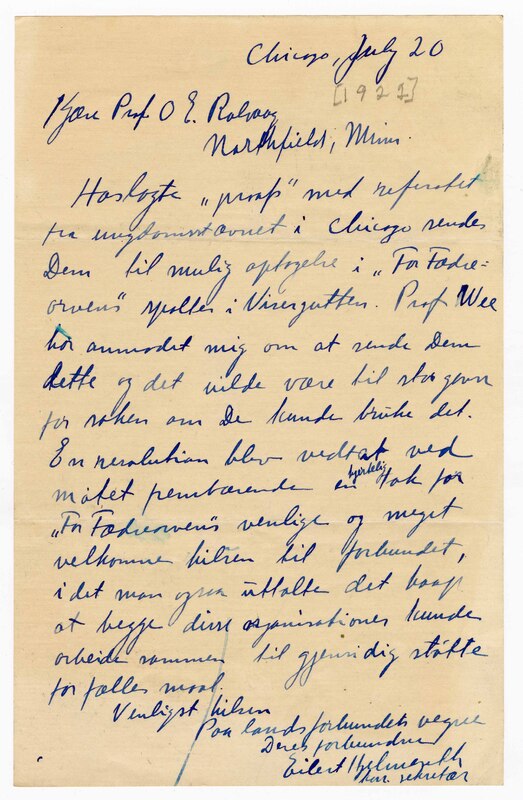 Chicago, July 20
[1921]
Kjære Prof O. E. Rolvaag
Northfield, Minn.
Hoslagte „proof" med referatet
fra ungdomsstævnet i Chicago sendes
Dem til mulig optagelse i „For Fædre=
arvens" spalter i Visergutten. Prof. Wee
har anmodet mig om at sende Dem
dette og det vilde være til stor gavn
for saken om De kunde bruke det.
En resolution blev vedtat ved
møtet frembærende en hjertelig tak for
„For Fædrearvens" venlige og meget
velkomne hilsen til forbundet,
idet man ogsaa uttalte det haap
at begge disse organisationer kunde
arbeide sammen til gjensidig støtte
for fælles maal.
Venligst hilsen
Paa landsforbundets vegne
Deres forbundne
Eilert
sekretær